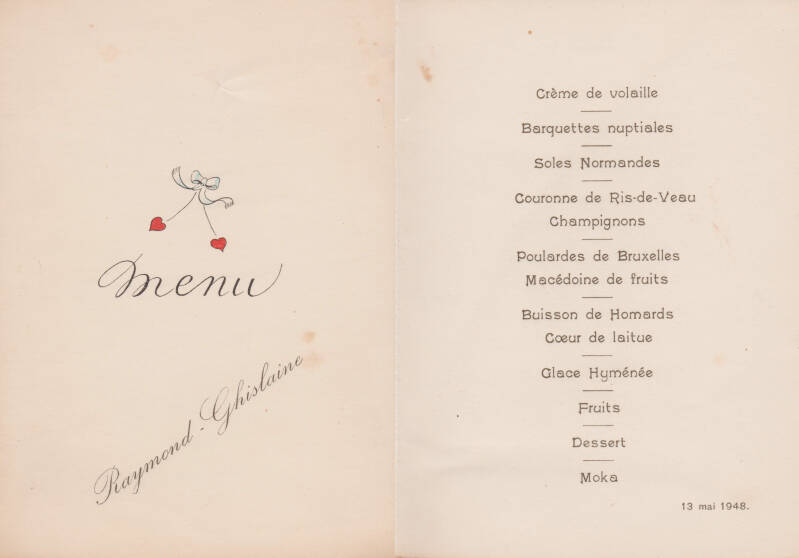 Menu
Raymond - Ghislaine
Crème de volaille
Barquettes nuptiales
Soles Normandes
Couronne de Ris-de-Veau
Champignons
Poulardes de Bruxelles
Macédoine de fruits
Buisson de Homards
Cœur de laitue
Glace Hyménée
Fruits
Dessert
Moka
13 mai 1948.